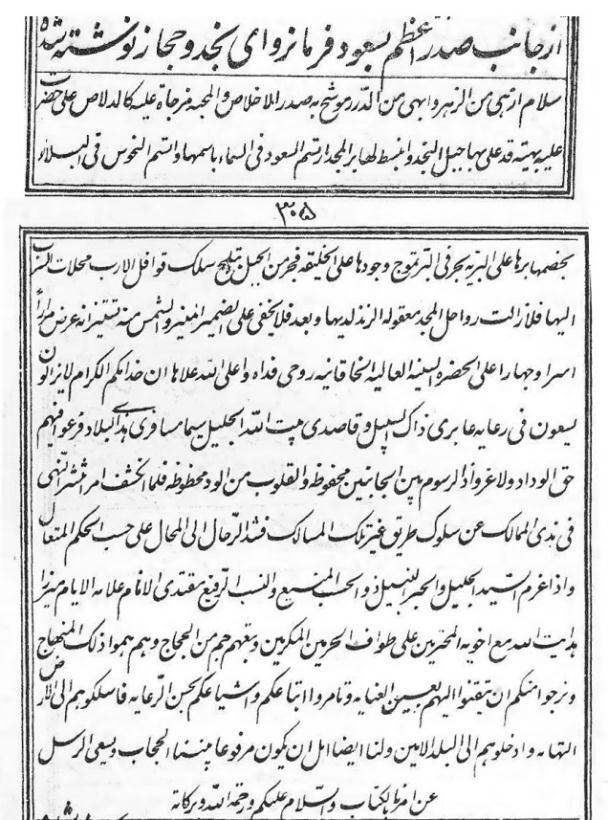 از جانب صدر اعظم بسعود فرمانروای نجد و حجاز نوشته شده
سلام ازهی من الزهر وابهی من الدرر موشح به صدر الاخلاص و المحبه مزجاة علیه کالدلاص علی حضرت
علیه بهیته قد علی بها جبل النجد وانبسط لها بر المجد ارتسم السعود فی السماء باسمها واتسم النحوس فی البلاء
۳۰۵
بخصمها برها علی البریه بحر فی البر تموج وجودها علی الخلیقه فجر من الجبل تبلج سلک قوافل الارب محلات السراب
الیها فلا زالت رواحل المجد معقوله الزند لدیها و بعد فلا یخفی علی الضمیر المنیر والشمس منه تستنیر انه عرض مرارا
اسرا وجهارا علی الحضره السنیه العالیه الخاقانیه روحی فداه واعلی الله علاها ان خدامکم الکرام لایزالون
یسعون فی رعایه عابری ذاک السبیل و قاصدی بیت الله الجلیل سیما مسافری هذی البلاد فرعوا فیهم
حق الوداد ولا غرو اذ الرسوم بین الجانبین محفوظه والقلوب من الود محظوظه فلما انکشف امر انتشر النهی
فی هذی الممالک عن سلوک طریق غیر تلک المسالک فشد الرحال الی المحال علی حسب الحکم المتعال
واذا عزم السید الجلیل والحبر النبیل ذو الحسب المنیع والنسب الرفیع مقتدی الانام علامه الایام میرزا
هدایت الله مع اخویه المحترمین علی طواف الحرمین المکرمین ومعهم جم من الحجاج وهم هموا ذلک المنهاج
ونرجو امنکم ان تبقنوا الیهم بعین العنایه وتامروا اتباعکم واشیاعکم بحسن الرعایه فاسلکوهم الی الارض
التهامه وادخلوهم الی البلد الامین ولنا ایضا امل ان یکون مرفوعا بیننا الحجاب ویسعی الرسل
عن الکتاب والسلام علیکم ورحمة الله وبرکاته